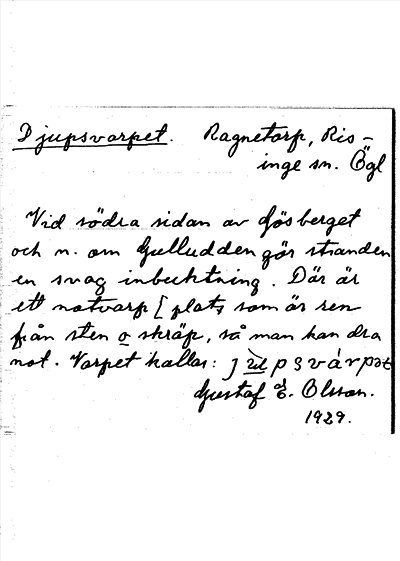 Djupsvarpet. Ragnetorp, Ris-
inge sn. Ögl
Vid södra sidan av Gösberget
och n. om Gulludden gör stranden
en svag inbucktning. Där är
ett notvarp [plats som är ren
från sten o skräp, så man kan dra
not. Varpet kallas:
Gustaf E. Olsson.
1929.